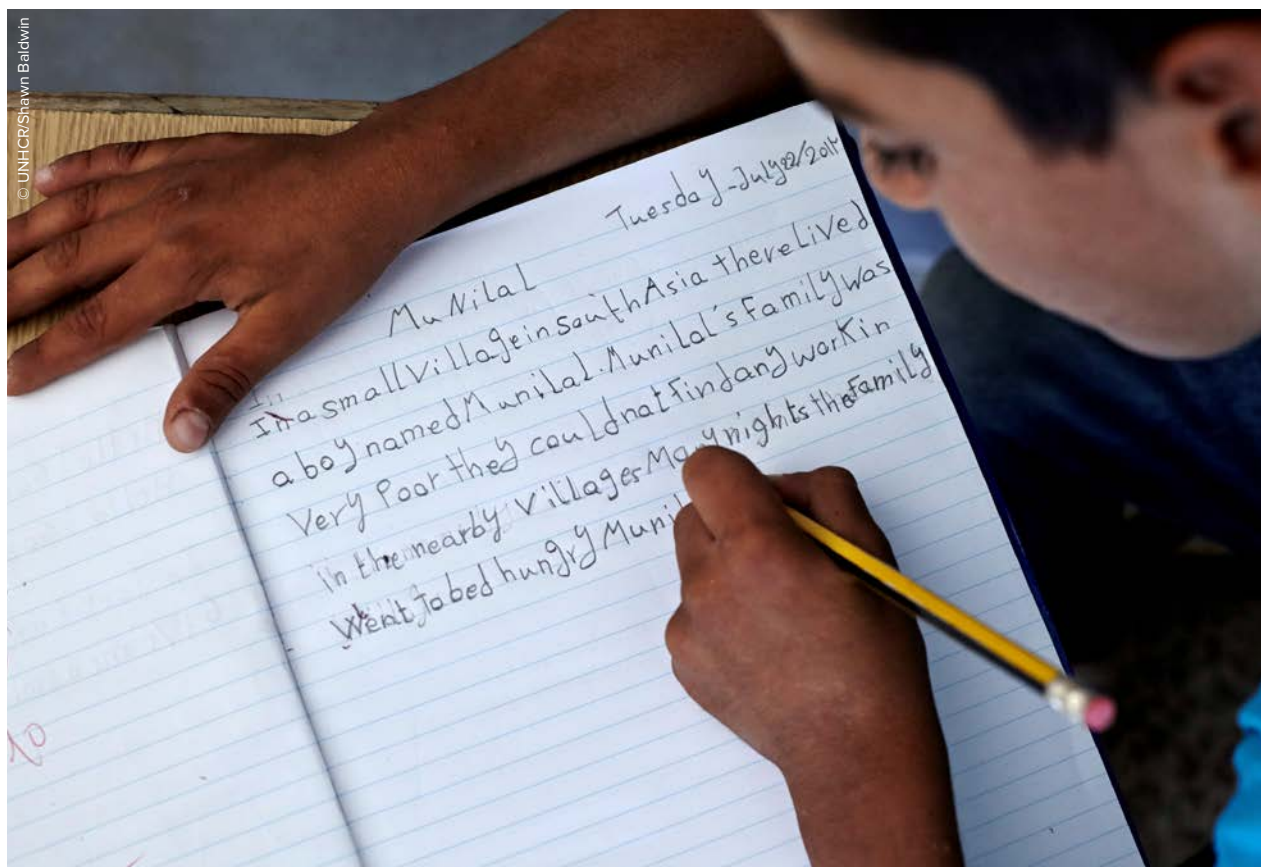 © UNHCR/Shawn Baldwin
Tuesday-July22/2014
MuNilal
In a small village in south Asia there Lived
a boy named Munilal. Munilal's Family was
Very Poor they could nat Find any work in
in the nearby Villages Many nights the Family
Went to bed hungry